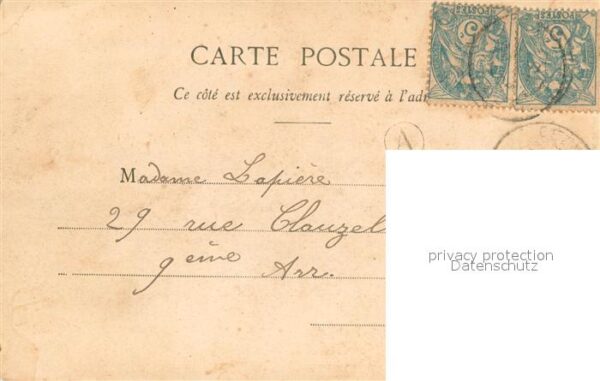 CARTE POSTALE
Ce côté est exclusivement réservé à l'adr
A
Madame Lapière
29 rue Clauzel
9ème Arr.
privacy protection
Datenschutz
POSTES
POSTES